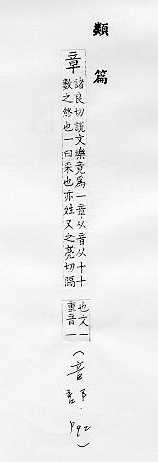 類篇
章
諸良切說文樂竟為一章从音从十十
數之終也一曰采也亦姓又之亮切隔
也文一
重音一
(音部. P92)